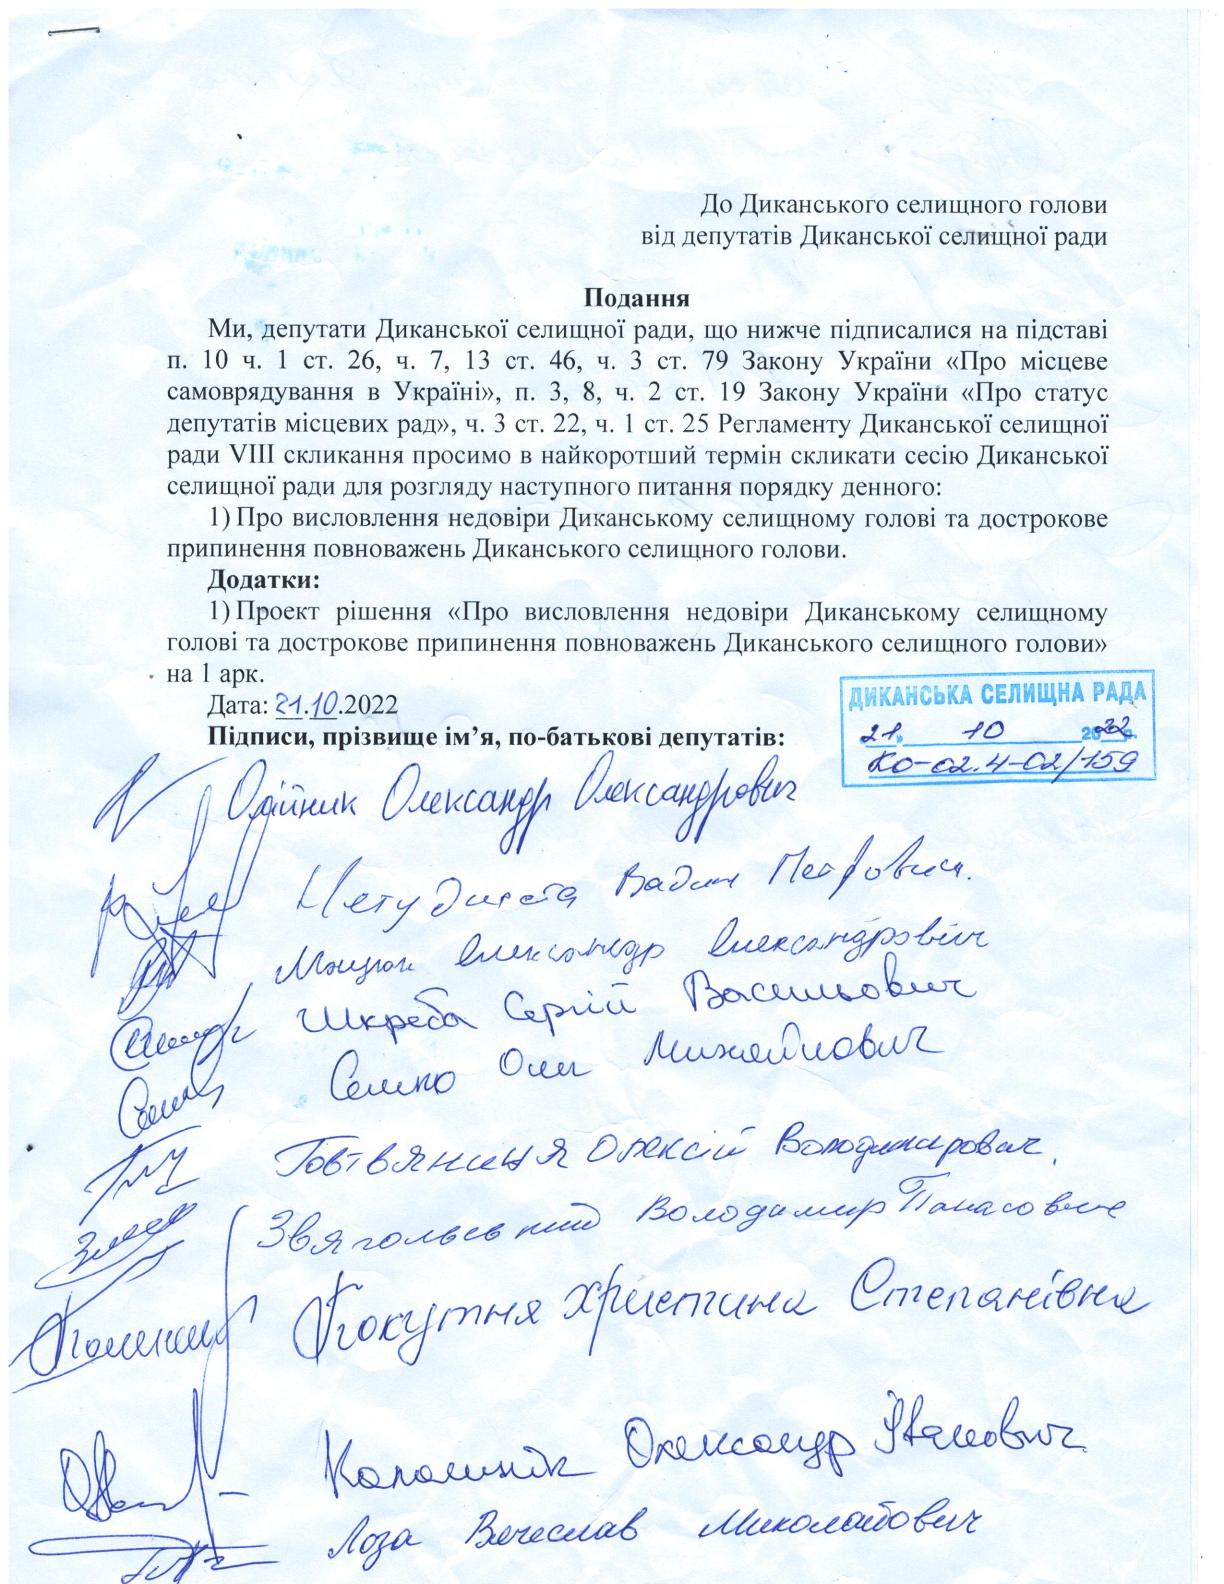 До Диканського селищного голови
від депутатів Диканської селищної ради
Подання
Ми, депутати Диканської селищної ради, що нижче підписалися на підставі
п. 10 ч. 1 ст. 26, ч. 7, 13 ст. 46, ч. 3 ст. 79 Закону України «Про місцеве
самоврядування в Україні», п. 3, 8, ч. 2 ст. 19 Закону України «Про статус
депутатів місцевих рад», ч. 3 ст. 22, ч. 1 ст. 25 Регламенту Диканської селищної
ради VIII скликання просимо в найкоротший термін скликати сесію Диканської
селищної ради для розгляду наступного питання порядку денного:
1) Про висловлення недовіри Диканському селищному голові та дострокове
припинення повноважень Диканського селищного голови.
Додатки:
1) Проект рішення «Про висловлення недовіри Диканському селищному
голові та дострокове припинення повноважень Диканського селищного голови»
на 1 арк.
Дата: 21.10.2022
ДИКАНСЬКА СЕЛИЩНА РАДА
21 10 2022
КО-02.4-02/159
Підписи, прізвище ім’я, по-батькові депутатів:
Олійник Олександр Олександрович
Вадим Петрович.
Мацюк Олександр Олександрович
Шкреба Сергій Васильович
Семко Олег Михайлович
Говтвяниця Олексій Володимирович.
Звягольський Володимир Панасович
Покутня Христина Степанівна
Олександр Іванович
Лоза Вячеслав Миколайович